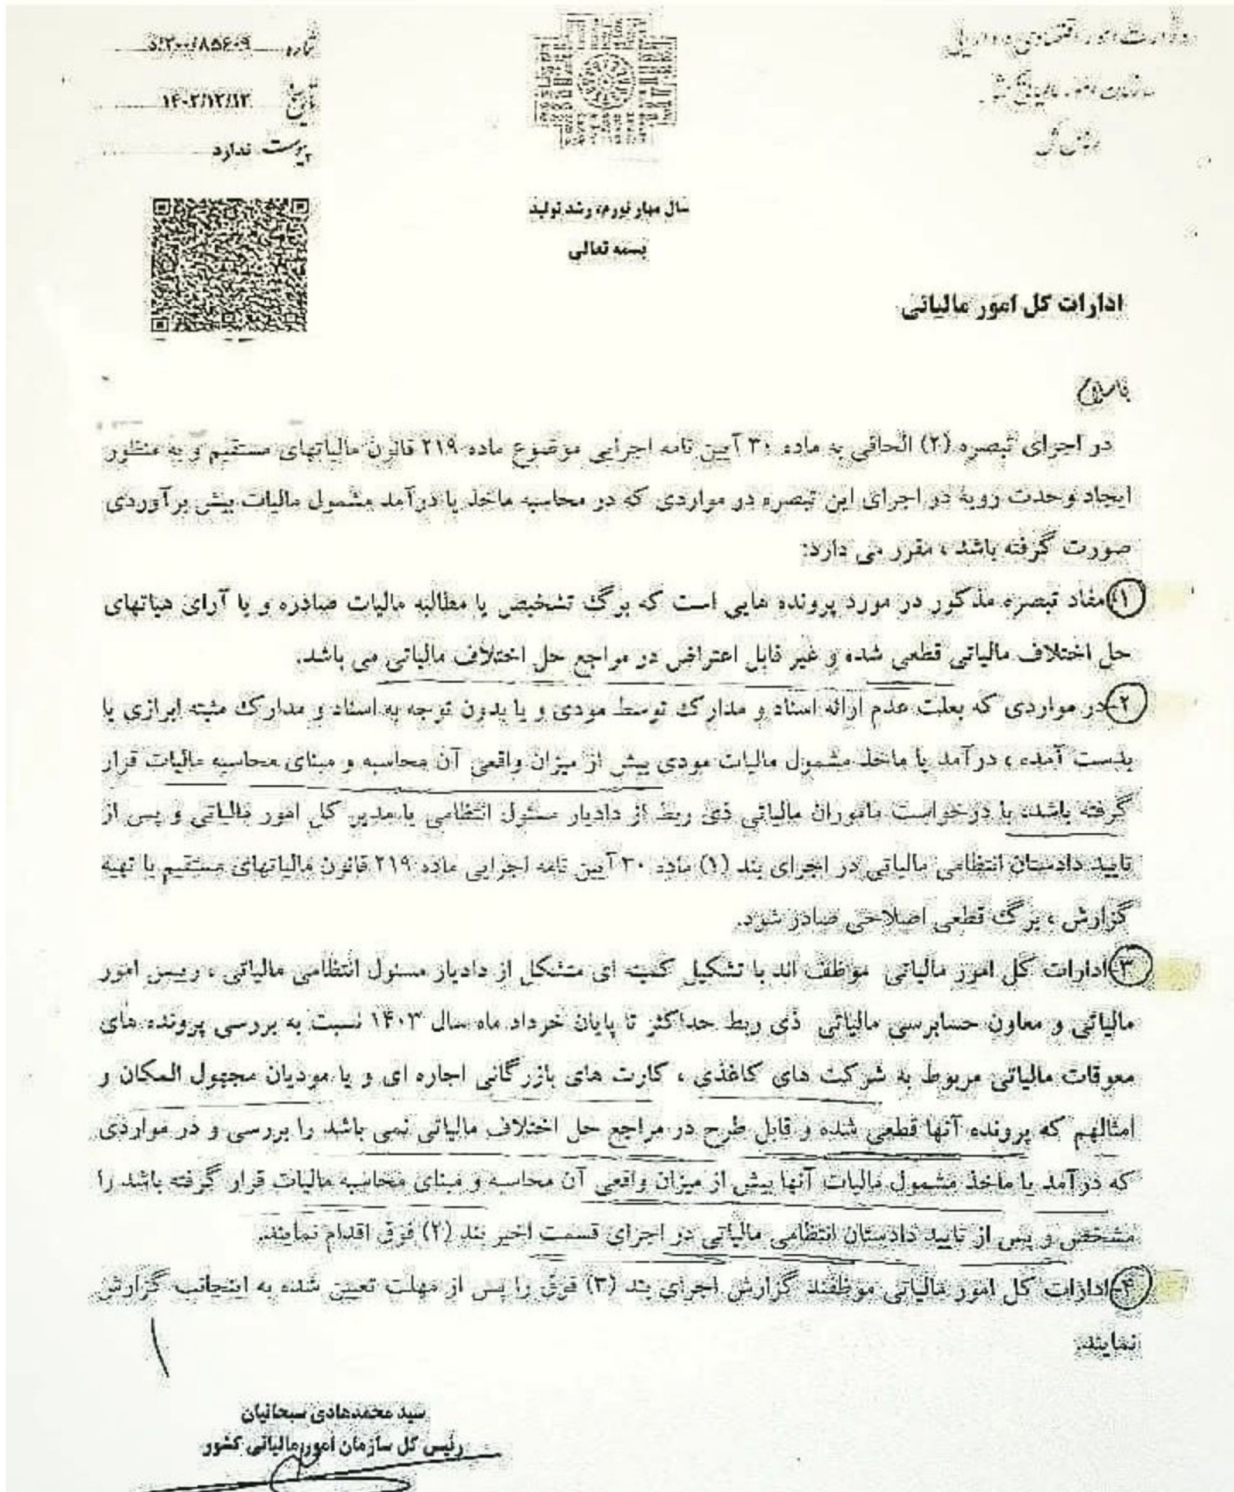 وزارت امور اقتصادی و دارایی
سازمان امور مالیاتی کشور
رئیس کل
شماره ۲۰۰/۸۵۶۰۹/د
تاریخ ۱۴۰۲/۱۲/۱۲
پیوست ندارد
سال مهار تورم، رشد تولید
بسمه تعالی
ادارات کل امور مالیاتی
باسلام
در اجرای تبصره (۲) الحاقی به ماده ۳۰ آیین نامه اجرایی موضوع ماده ۲۱۹ قانون مالیاتهای مستقیم و به منظور
ایجاد وحدت رویه در اجرای این تبصره در مواردی که در محاسبه ماخذ یا درآمد مشمول مالیات بیش برآوردی
صورت گرفته باشد ، مقرر می دارد:
۱-مفاد تبصره مذکور در مورد پرونده هایی است که برگ تشخیص یا مطالبه مالیات صادره و یا آرای هیاتهای
حل اختلاف مالیاتی قطعی شده و غیر قابل اعتراض در مراجع حل اختلاف مالیاتی می باشد.
۲-در مواردی که بعلت عدم ارائه اسناد و مدارک توسط مودی و یا بدون توجه به اسناد و مدارک مثبته ابرازی یا
بدست آمده ، درآمد یا ماخذ مشمول مالیات مودی بیش از میزان واقعی آن محاسبه و مبنای محاسبه مالیات قرار
گرفته باشد، با درخواست ماموران مالیاتی ذی ربط از دادیار مسئول انتظامی یا مدیر کل امور مالیاتی و پس از
تایید دادستان انتظامی مالیاتی در اجرای بند (۱) ماده ۳۰ آیین نامه اجرایی ماده ۲۱۹ قانون مالیاتهای مستقیم با تهیه
گزارش ، برگ قطعی اصلاحی صادر شود.
۳-ادارات کل امور مالیاتی موظف اند با تشکیل کمیته ای متشکل از دادیار مسئول انتظامی مالیاتی ، رییس امور
مالیاتی و معاون حسابرسی مالیاتی ذی ربط حداکثر تا پایان خرداد ماه سال ۱۴۰۳ نسبت به بررسی پرونده های
معوقات مالیاتی مربوط به شرکت های کاغذی ، کارت های بازرگانی اجاره ای و یا مودیان مجهول المکان و
امثالهم که پرونده آنها قطعی شده و قابل طرح در مراجع حل اختلاف مالیاتی نمی باشد را بررسی و در مواردی
که درآمد یا ماخذ مشمول مالیات آنها بیش از میزان واقعی آن محاسبه و مبنای محاسبه مالیات قرار گرفته باشد را
مشخص و پس از تایید دادستان انتظامی مالیاتی در اجرای قسمت اخیر بند (۲) فوق اقدام نمایند.
۴-ادارات کل امور مالیاتی موظفند گزارش اجرای بند (۳) فوق را پس از مهلت تعیین شده به اینجانب گزارش
نمایند.
سید محمدهادی سبحانیان
رئیس کل سازمان امور مالیاتی کشور